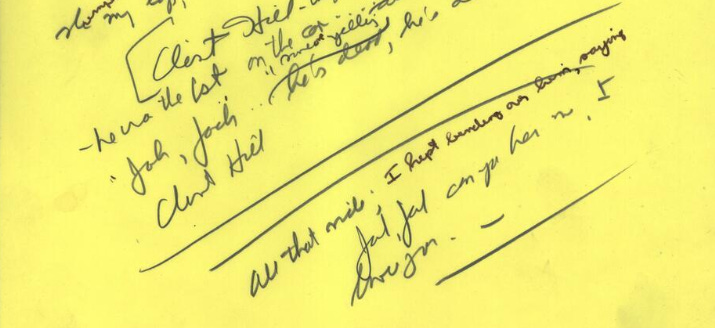 my
[Clint Hill
- he was the last on the car
"Jack, Jack he's dead, he's
Clint Hill
All that ride, I kept bending over him, saying
Jack, Jack can you hear me, I
love you. —